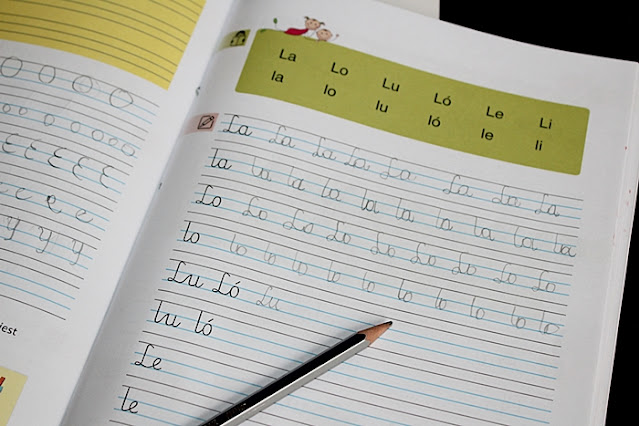 O O O O
o o o o o o o
E E E E E
e e e e
y y y y
jest
La Lo Lu Ló Le Li
la lo lu ló le li
La La La La La La La La
la la la la la la la la la la
Lo Lo Lo Lo Lo Lo Lo Lo Lo
lo lo lo lo lo lo lo lo lo lo
Lu Ló Lu
lu ló
Le
le